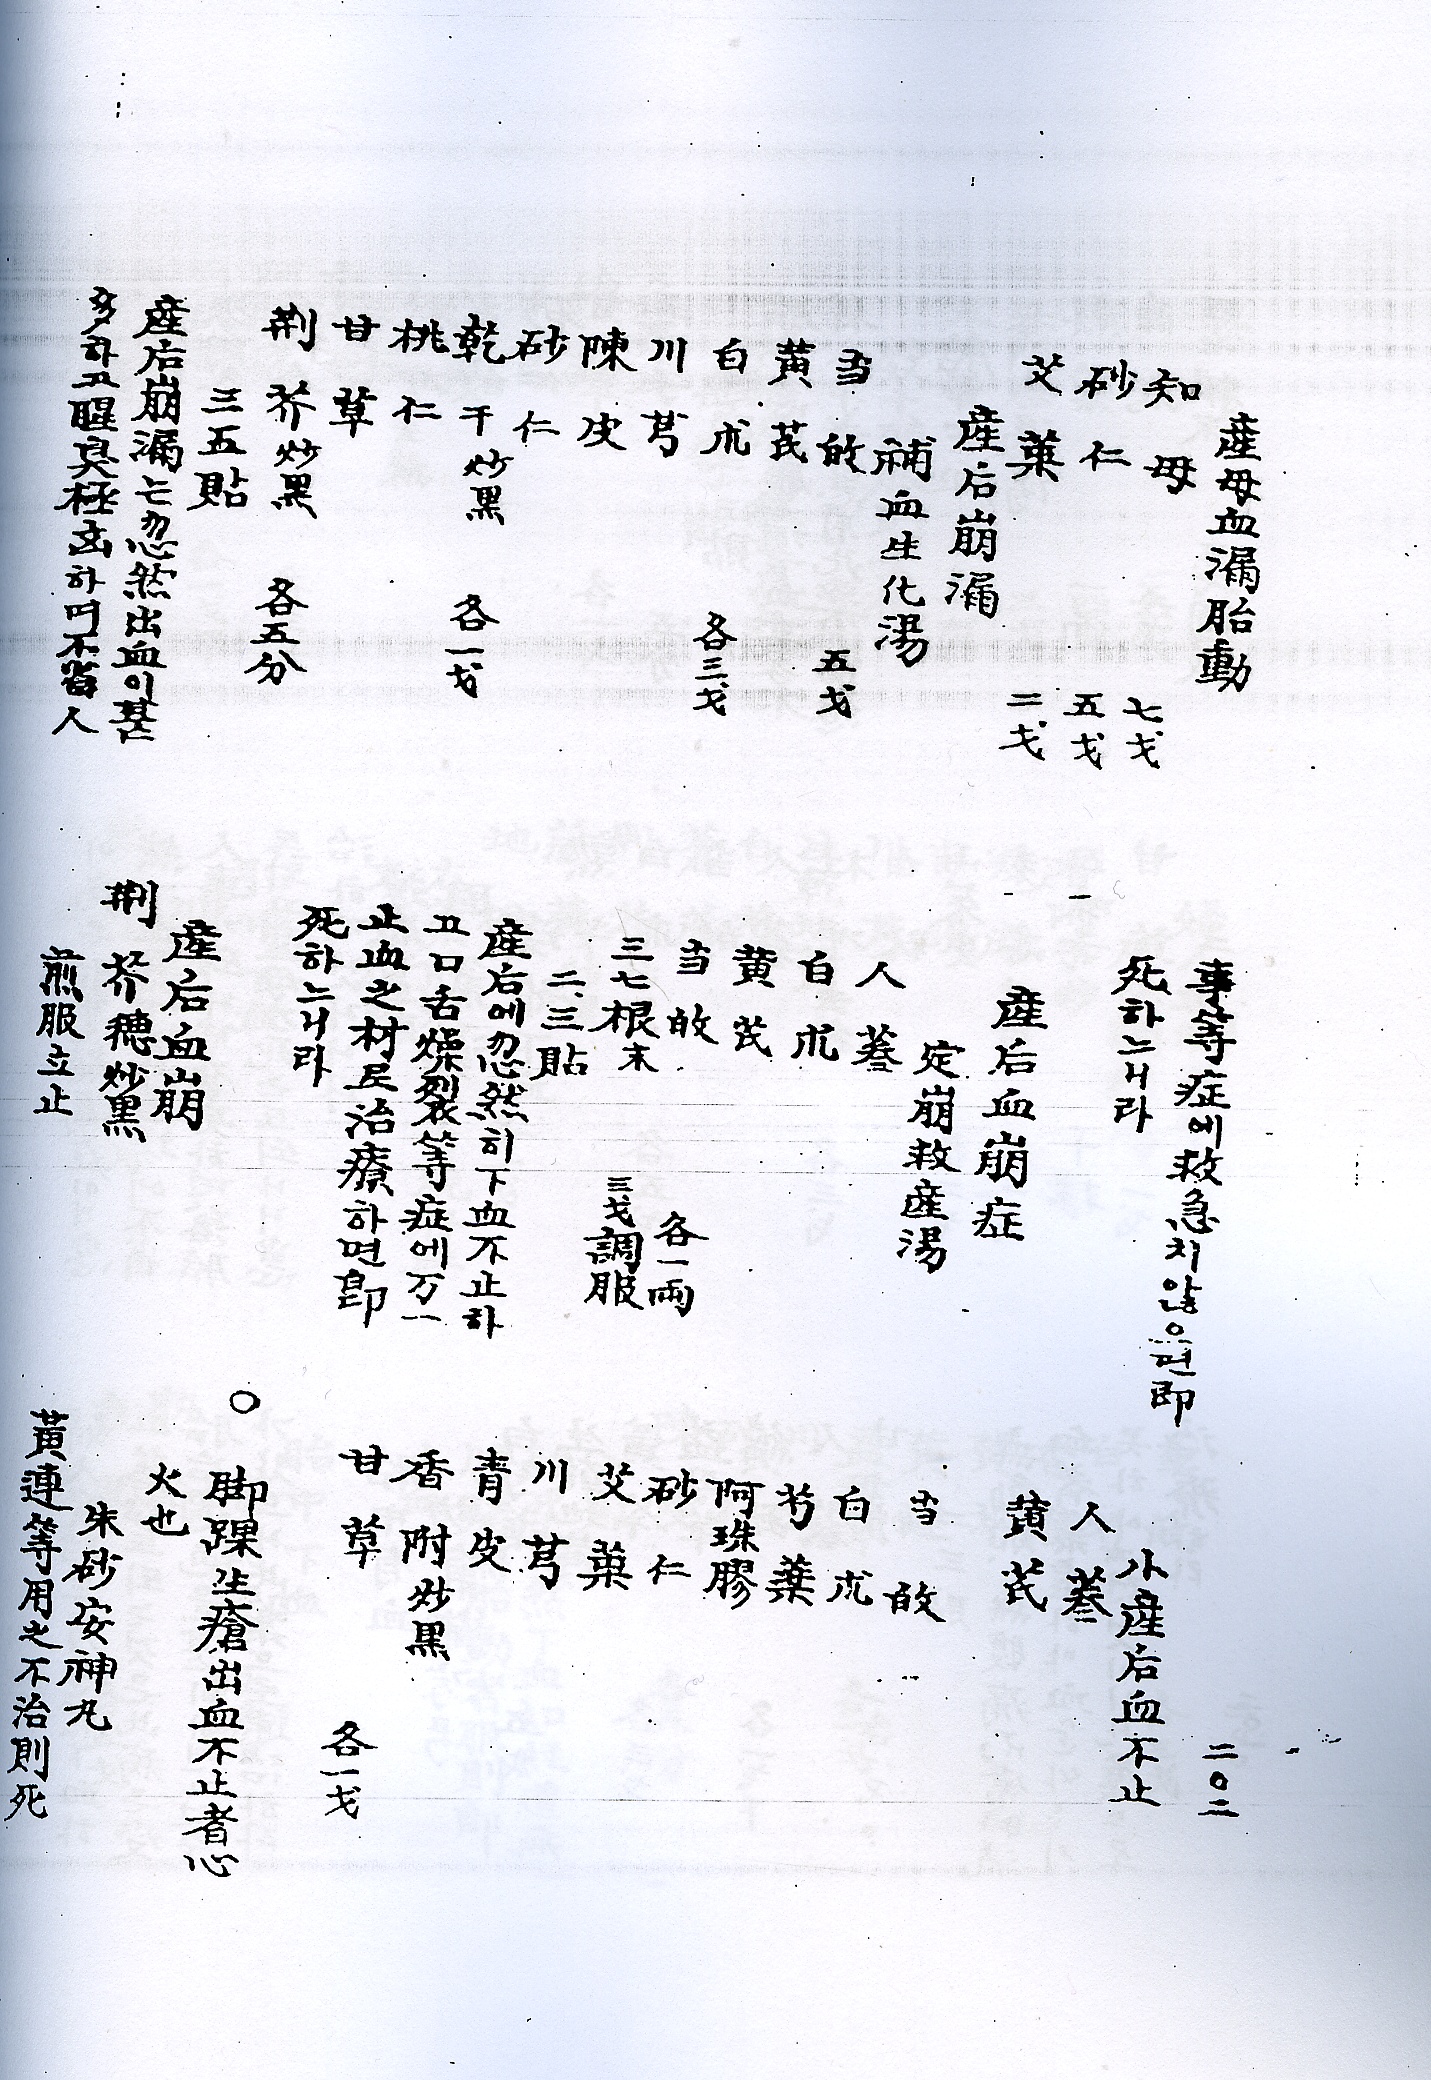 産母血漏胎動
知母 七戈
砂仁 五戈
艾葉 二戈
産后崩漏
補血生化湯
当故 五戈
黄芪
白朮 各三戈
川芎
陳皮
砂仁
乾干炒黒 各一戈
桃仁
甘草
荆芥炒黒 各五分
三五貼
産后崩漏는忽然出血이甚
多하고腥臭極 하며不省人
事等症에救急치않으면即
死하느니라
産后血崩症
定崩救産湯
人蔘
白朮
黄芪
当故 各一両
三七根末 三戈調服
二、三貼
産后에忽然히下血不止하
고口舌燥裂等症에万一
止血之材로治療하면即
死하느니라
産后血崩
荆芥穗炒黒
煎服立止
二〇二
小産后血不止
人蔘
黄芪
当故
白朮
芍薬
阿珠膠
砂仁
艾葉
川芎
青皮
香附炒黒
甘草 各一戈
○脚踝生瘡出血不止者心
火也
朱砂安神丸
黃連等用之不治則死